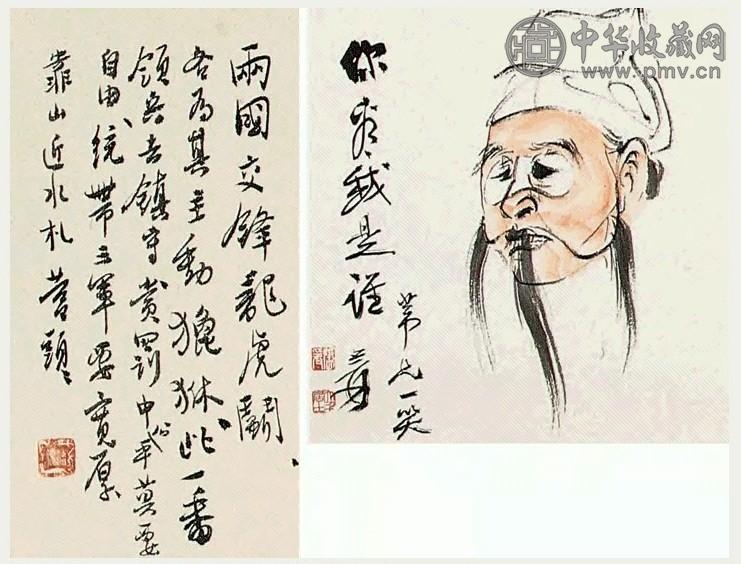 兩國交鋒龍虎鬬、
各為其主動貔貅此一番
領兵去鎮守賞罰中公平莫要
自由、統帶三軍要寬厚
靠山近水札營頭、
中华收藏网
www.pmv.cn
你看我是誰
一笑
爰